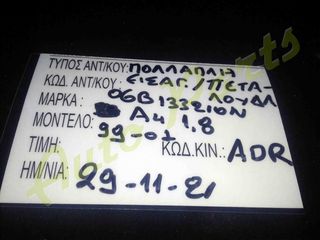 ΤΥΠΟΣ ΑΝΤ/ΚΟΥ: ΠΟΛΛΑΠΛΗ
ΚΩΔ. ΑΝΤ/ΚΟΥ: ΕΙΣΑΓ./ΠΕΤΑ-
ΛΟΥΔΑ
ΜΑΡΚΑ: 06B133210N
ΜΟΝΤΕΛΟ: A4 1.8
99-01
ΤΙΜΗ: ΚΩΔ.ΚΙΝ.: ADR
ΗΜ/ΝΙΑ: 29-11-21